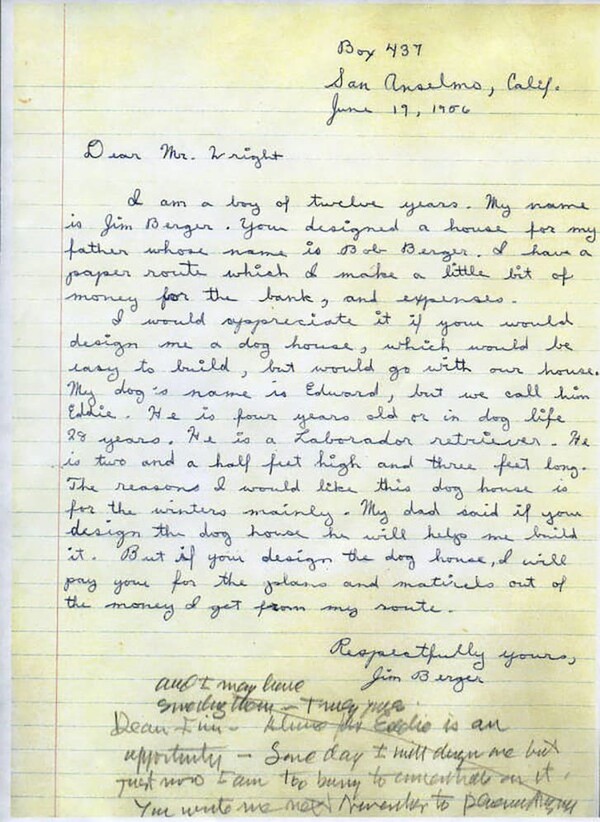 Box 437
San Anselmo, Calif.
June 19, 1956
Dear Mr. Wright
I am a boy of twelve years. My name
is Jim Berger. You designed a house for my
father whose name is Bob Berger. I have a
paper route which I make a little bit of
money for the bank, and expenses.
I would appreciate it if you would
design me a dog house, which would be
easy to build, but would go with our house.
My dog's name is Edward, but we call him
Eddie. He is four years old or in dog life
28 years. He is a Laborador retriever. He
is two and a half feet high and three feet long.
The reasons I would like this dog house is
for the winters mainly. My dad said if you
design the dog house he will helps me build
it. But if you design the dog house, I will
pay you for the plans and matirels out of
the money I get from my route.
Respectfully yours,
Jim Berger
and I may have
something then - Truly yours
Dear Jim - A house for Eddie is an
opportunity - Some day I will design one but
just now I am too busy to concentrate on it.
You write me next November to Phoenix